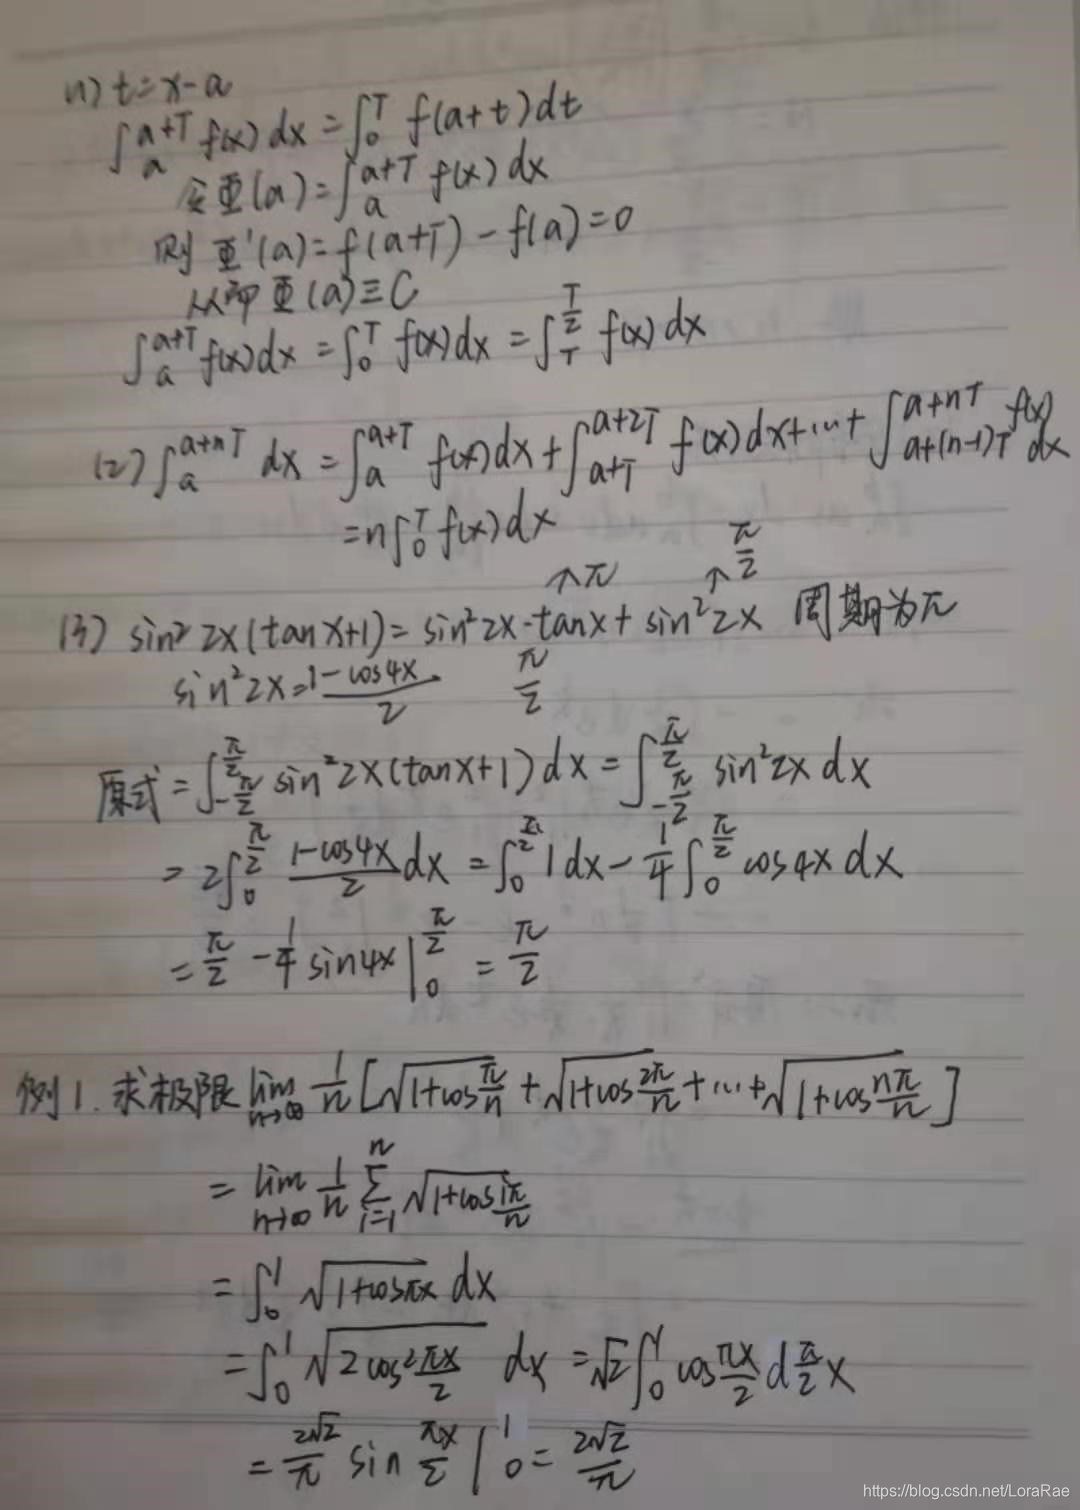 (1) t=x-a
∫_a^{a+T} f(x)dx = ∫_0^T f(a+t)dt
令Φ(a)=∫_a^{a+T} f(x)dx
则Φ'(a)=f(a+T)-f(a)=0
从而Φ(a)≡C
∫_a^{a+T} f(x)dx = ∫_0^T f(x)dx = ∫_T^{T/2} f(x)dx
(2) ∫_a^{a+nT} dx = ∫_a^{a+T} f(x)dx + ∫_{a+T}^{a+2T} f(x)dx+…+ ∫_{a+(n-1)T}^{a+nT} f(x)dx
=n∫_0^T f(x)dx
↑π ↑π/2
(3) sin²2x(tanx+1)= sin²2x·tanx+ sin²2x 周期为π
sin²2x=(1-cos4x)/2 π/2
原式=∫_{-π/2}^{π/2} sin²2x(tanx+1)dx = ∫_{-π/2}^{π/2} sin²2x dx
= 2∫_0^{π/2} (1-cos4x)/2 dx = ∫_0^{π/2} 1dx - 1/4 ∫_0^{π/2} cos4x dx
= π/2 - 1/4 sin4x |_0^{π/2} = π/2
例1. 求极限 lim_{n→∞} 1/n [√(1+cos π/n) + √(1+cos 2π/n) +…+ √(1+cos nπ/n)]
= lim_{n→∞} 1/n Σ_{i=1}^n √(1+cos iπ/n)
= ∫_0^1 √(1+cosπx) dx
= ∫_0^1 √(2cos² πx/2) dx = √2∫_0^1 cos πx/2 d π/2 x
= 2√2/π sin πx/2 |_0^1 = 2√2/π
https://blog.csdn.net/LoraRae